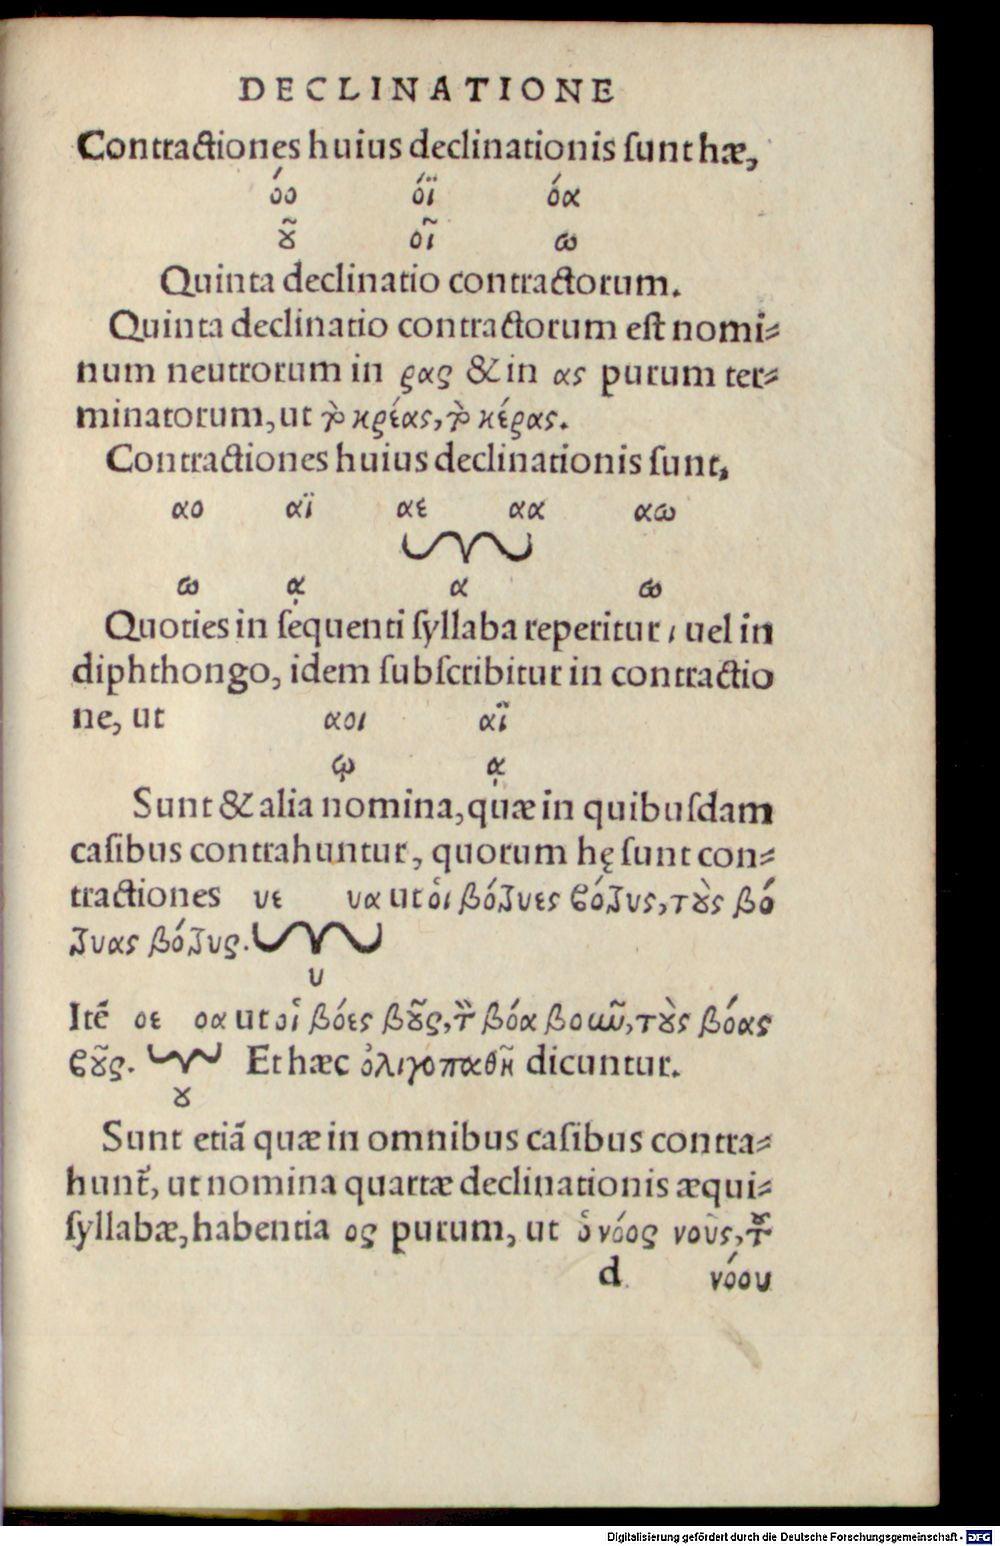 DECLINATIONE
Contractiones huius declinationis ſunt hæ,
όο όϊ όα
ȣ͂ οῖ ω
Quinta declinatio contractorum.
Quinta declinatio contractorum eſt nomi-
num neutrorum in ρας & in ας purum ter-
minatorum, ut τὸ κρέας, τὸ κέρας.
Contractiones huius declinationis ſunt,
αο αϊ αε αα αω
ω ᾳ α ω
Quoties in ſequenti ſyllaba reperitur ι uel in
diphthongo, idem ſubſcribitur in contractio
ne, ut αοι αϊ
ῳ ᾳ
Sunt & alia nomina, quæ in quibuſdam
caſibus contrahuntur, quorum hę ſunt con-
tractiones υε υα ut οἱ βότυες βότυς, τȣ̀ς βό
τυας βότυς.
υ
Itē οε οα ut οἱ βόες βȣ͂ς, τ βόα βοῶ, τȣ̀ς βόας
βȣ͂ς. Et hæc ὀλιγοπαθῆ dicuntur.
ȣ
Sunt etiā quæ in omnibus caſibus contra-
hunt̃, ut nomina quartæ declinationis æqui-
ſyllabæ, habentia ος purum, ut ὁ νόος νοῦς, τȣ͂
d νόου
Digitalisierung gefördert durch die Deutsche Forschungsgemeinschaft - DFG